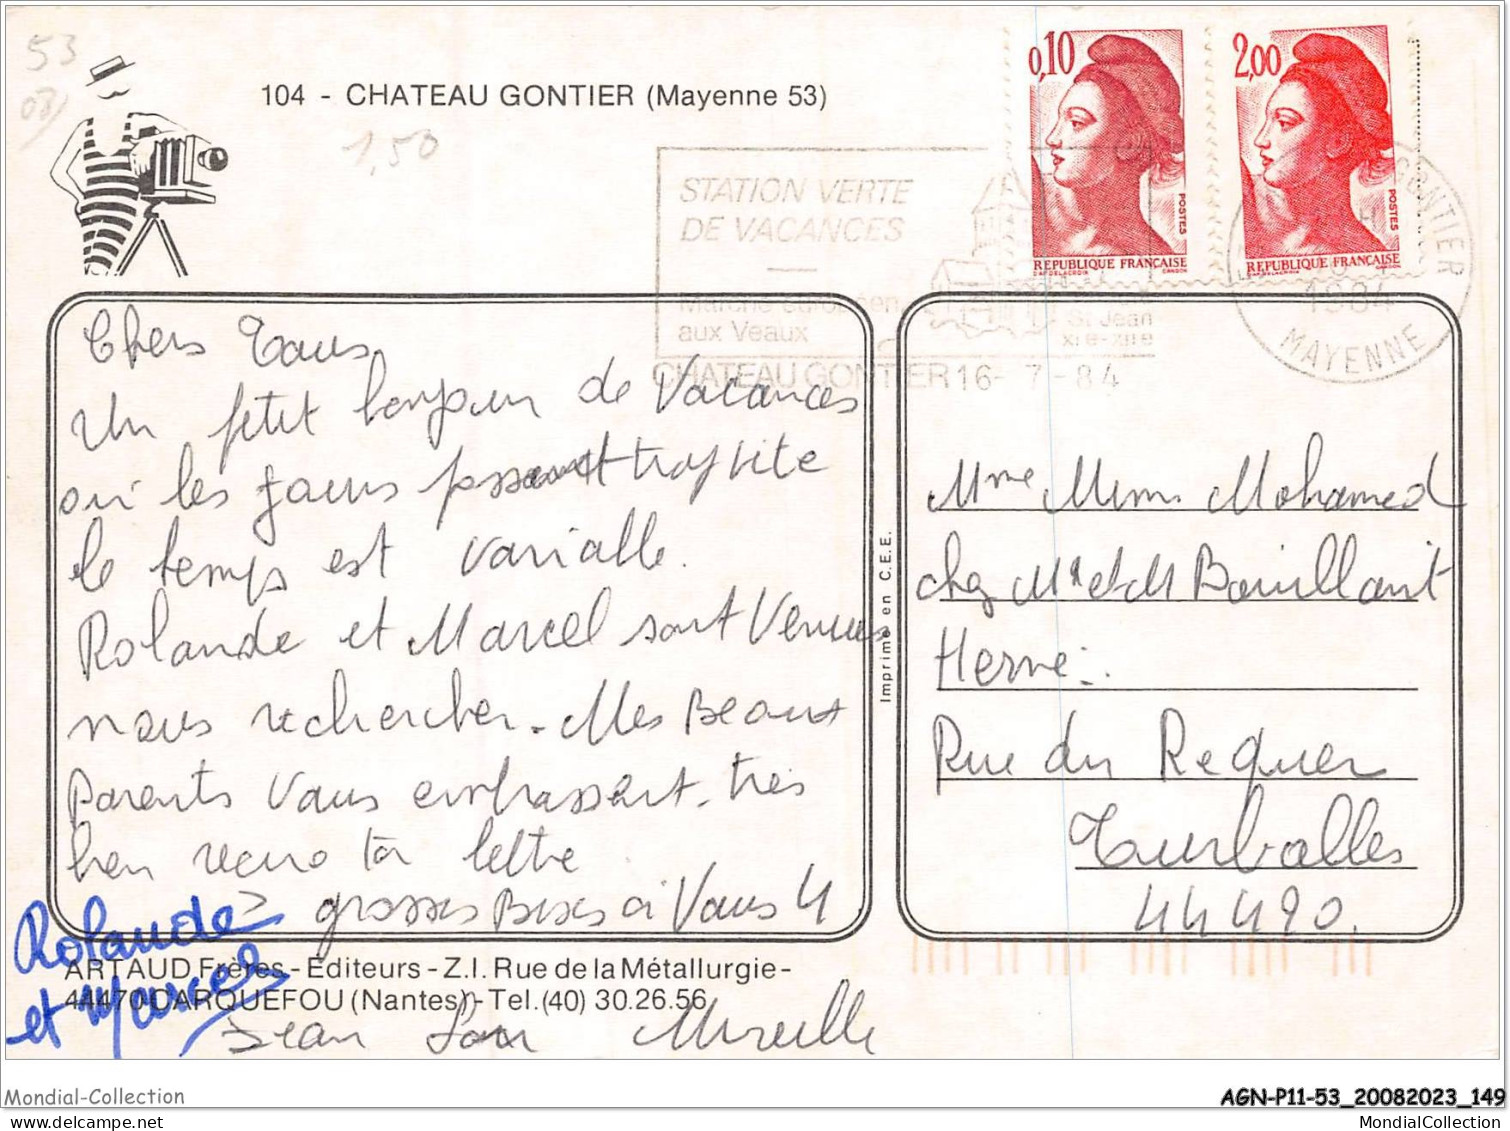 53
104 - CHATEAU GONTIER (Mayenne 53)
1,50
0,10
POSTES
REPUBLIQUE FRANÇAISE
2,00
POSTES
REPUBLIQUE FRANÇAISE
STATION VERTE
DE VACANCES
Marché européen
aux Veaux
St Jean
XIe-XIIe
CHATEAU GONTIER 16- 7 -84
GONTIER
1984
MAYENNE
Chers Tous
Un petit bonjour de Vacances
où les jours passent trop vite
le temps est variable.
Rolande et Marcel sont Venus
nous rechercher. Mes Beaux
Parents Vous embrassent. très
bien recu ta lettre
grosses Bises à Vous 4
Rolande
et Marcel
Jean Mireille
Imprimé en C.E.E.
Mme Mimi Mohamed
chez Mr et M Bouillant
Herve
Rue du Requer
Turballes
44490.
ARTAUD Frères - Éditeurs - Z.I. Rue de la Métallurgie -
44470 CARQUEFOU (Nantes) - Tel. (40) 30.26.56
Mondial-Collection
AGN-P11-53_20082023_149
www.mondial-collection.com
MondialCollection